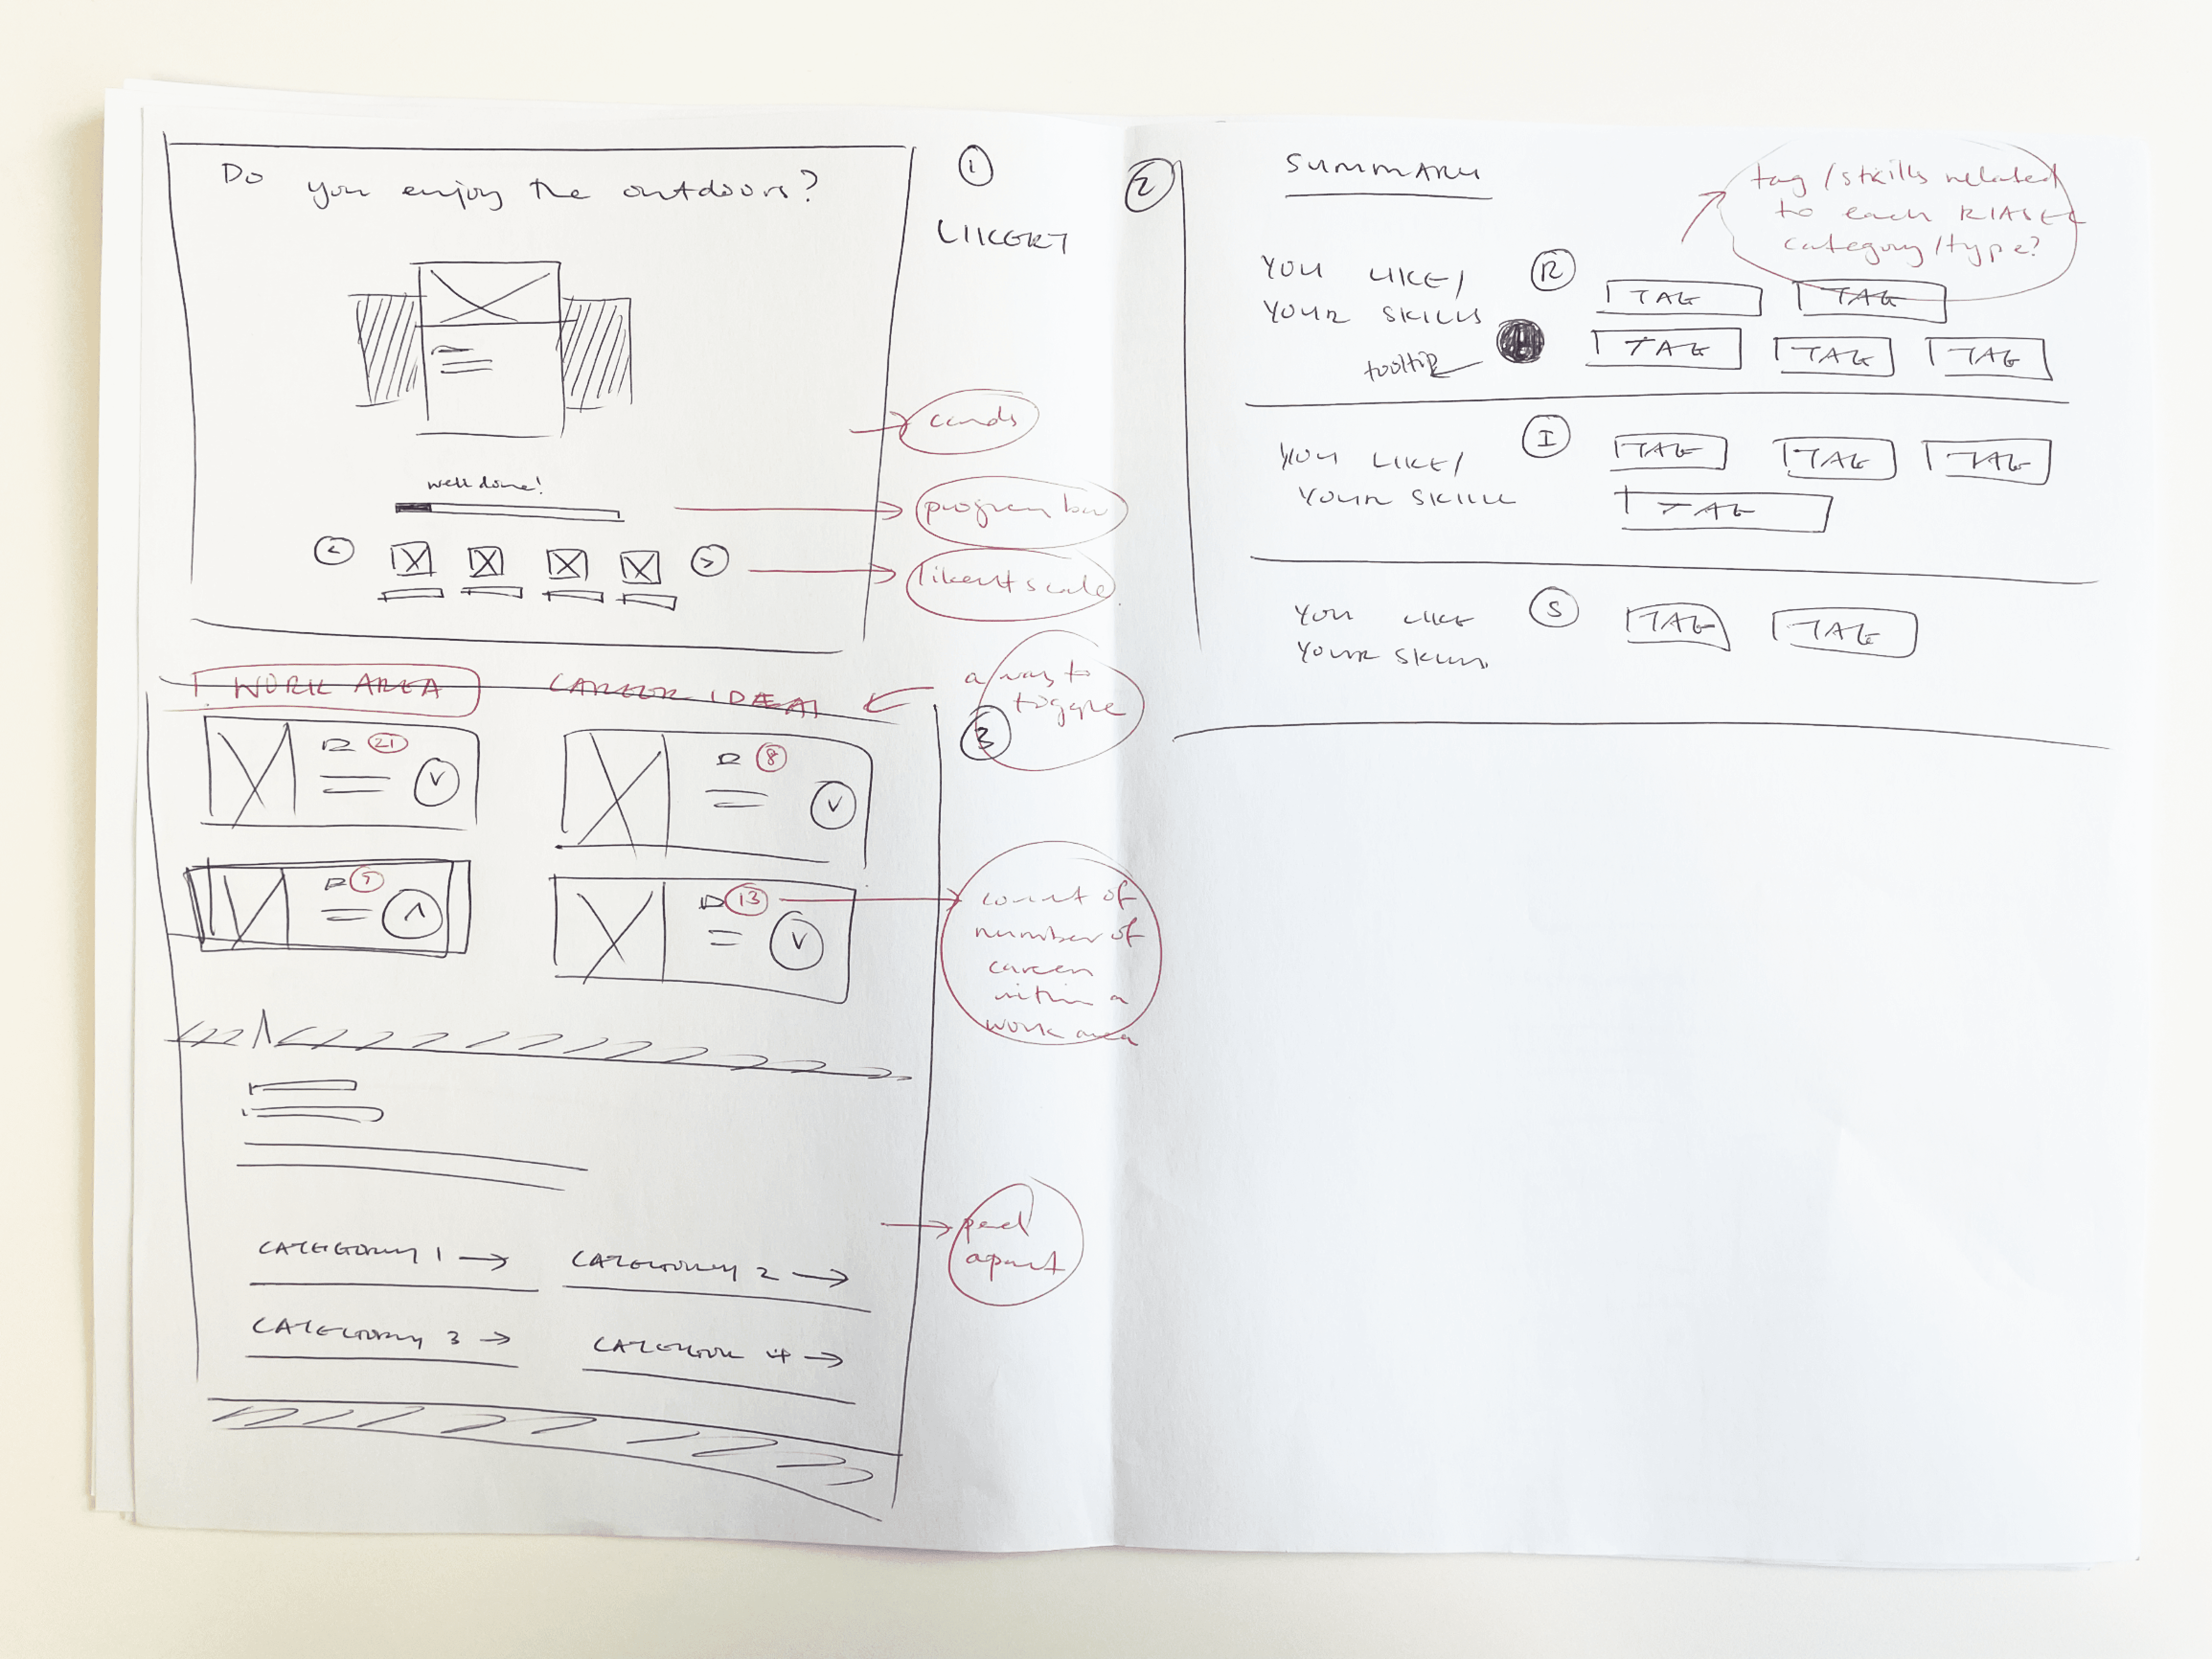 Do you enjoy the outdoors?
1
LIKERT
cards
well done!
progress bar
<
>
likert scale
WORK AREA
CAREER IDEAS
a way to
toggle
3
21
8
13
count of
number of
careers
within a
work area
CATEGORY 1 →
CATEGORY 2 →
CATEGORY 3 →
CATEGORY 4 →
2
SUMMARY
tag/skills related
to each RIASEC
category/type?
YOU LIKE/
YOUR SKILLS
R
TAG
TAG
tooltip
TAG
TAG
TAG
YOU LIKE/
YOUR SKILL
I
TAG
TAG
TAG
TAG
YOU LIKE
YOUR SKILLS
S
TAG
TAG
apart